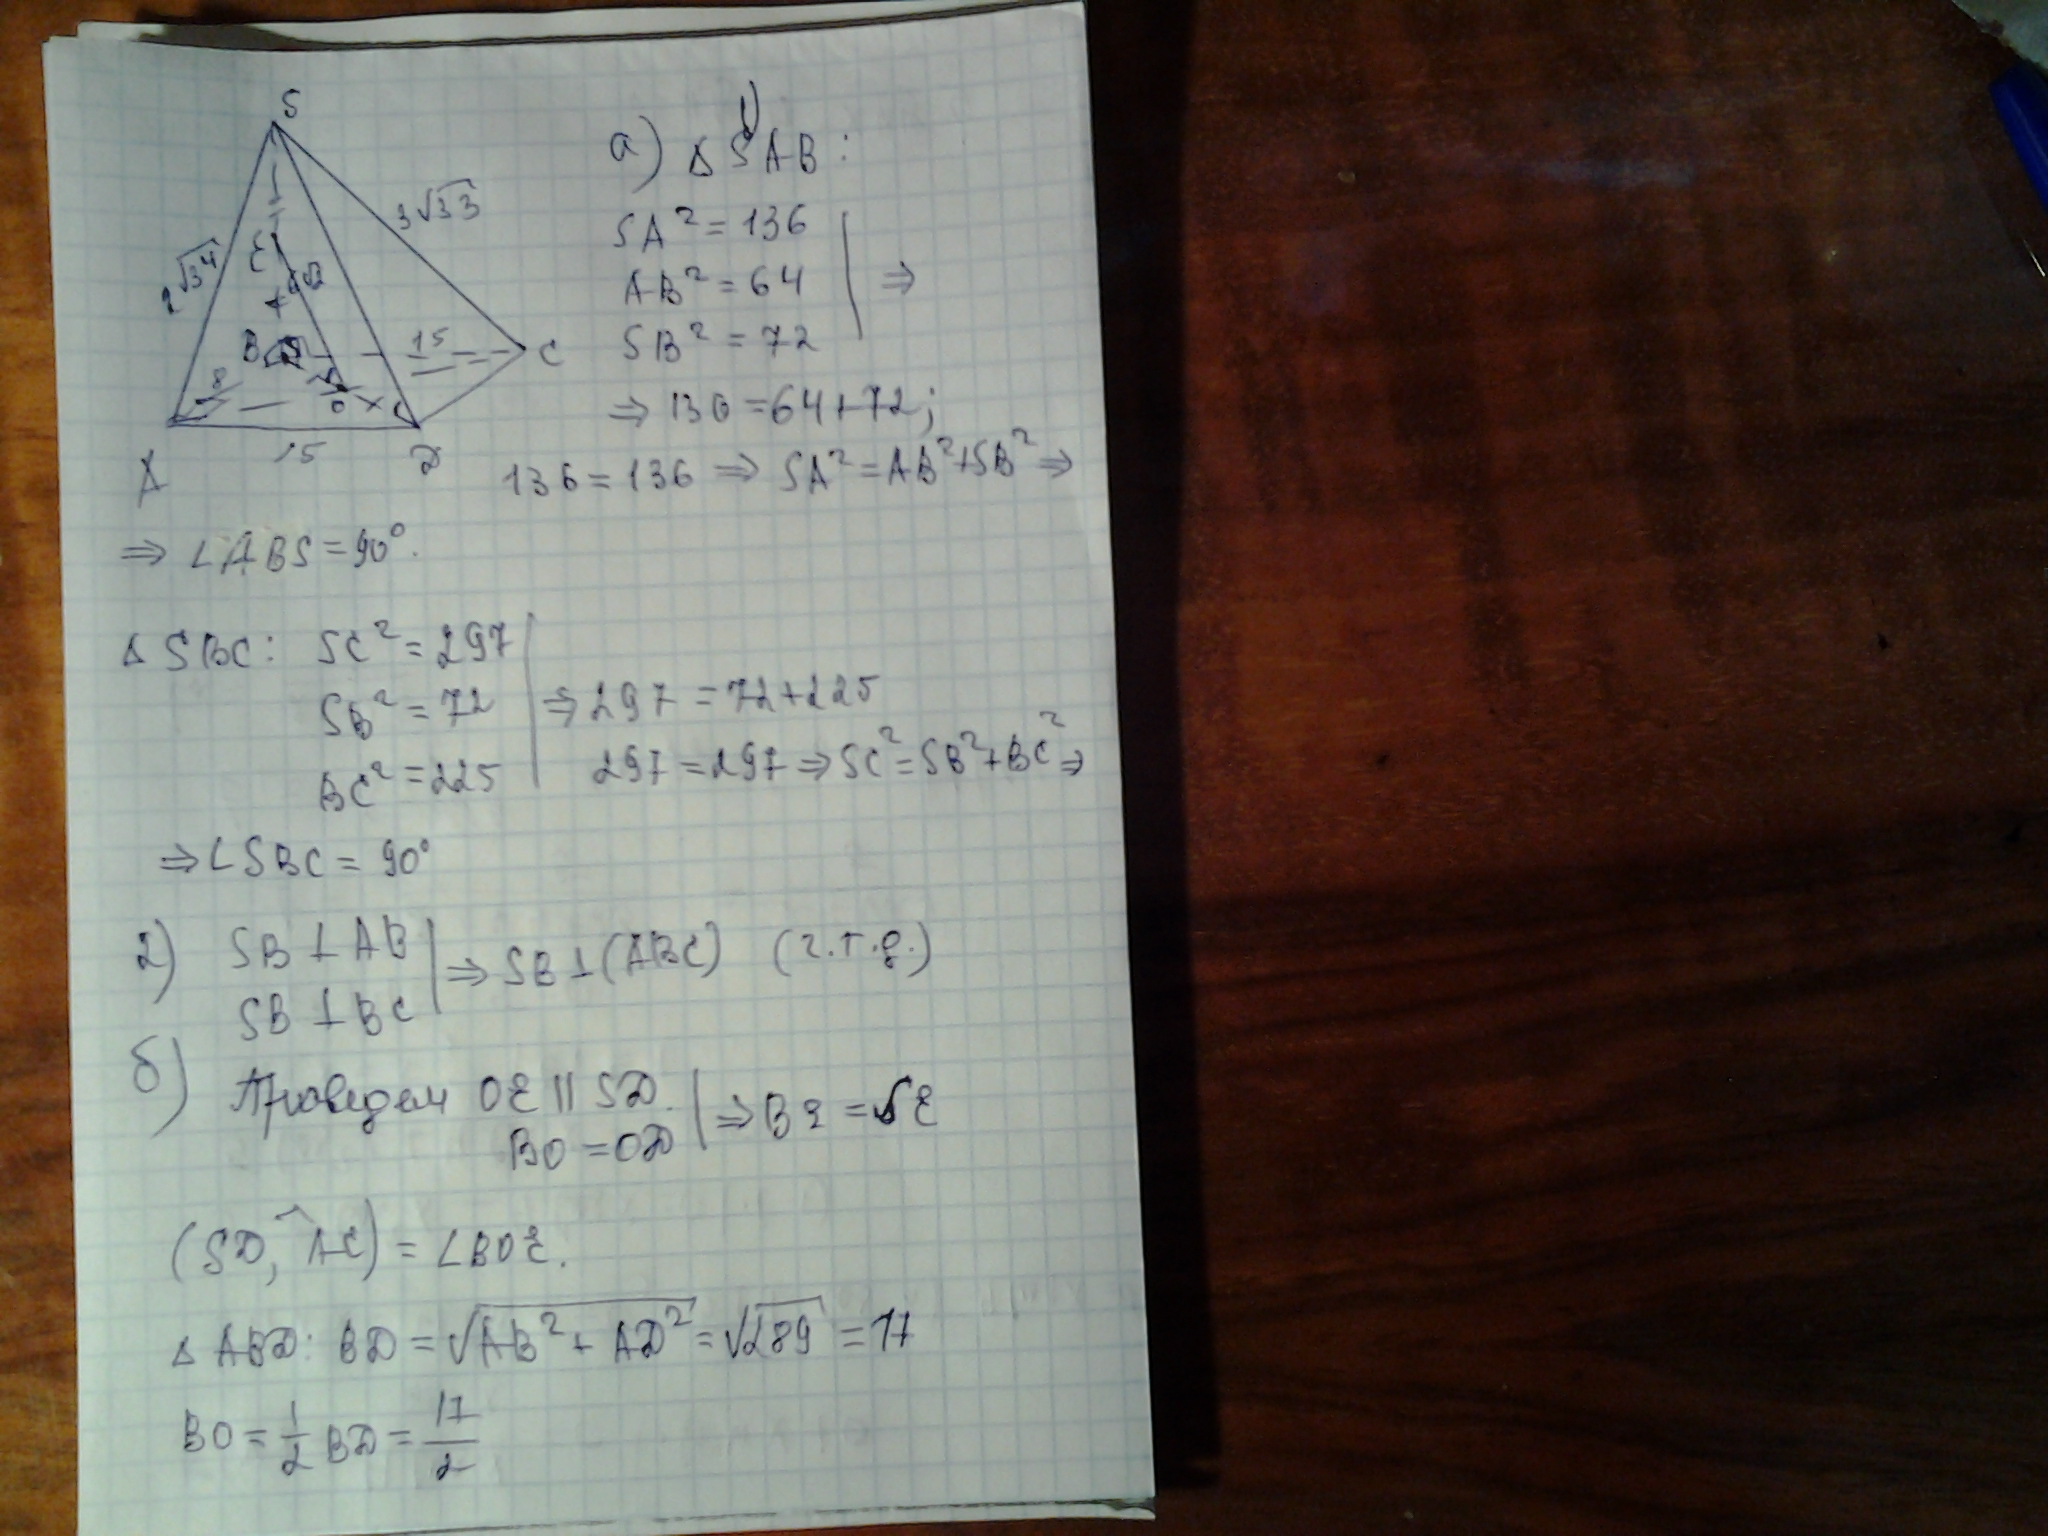 S
3√33
2√34
E
6√2
B
15
C
8
O
A
15
D
1)
а) Δ SAB:
SA² = 136
AB² = 64 ⇒
SB² = 72
⇒ 136 = 64 + 72;
136 = 136 ⇒ SA² = AB² + SB² ⇒
⇒ ∠ABS = 90°.
Δ SBC: SC² = 297
SB² = 72 ⇒ 297 = 72 + 225
BC² = 225 297 = 297 ⇒ SC² = SB² + BC² ⇒
⇒ ∠SBC = 90°
2) SB ⊥ AB
SB ⊥ BC ⇒ SB ⊥ (ABC) (ч.т.д.)
б) Проведем OE || SD.
BO = OD ⇒ BE = SE
(SD, ^AC) = ∠BOE.
Δ ABD: BD = √AB² + AD² = √289 = 17
BO = 1/2 BD = 17/2